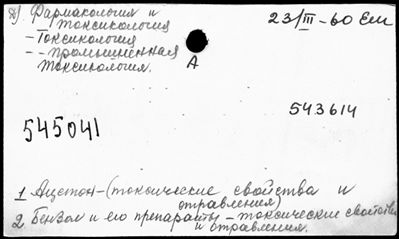 8) Фармакология и
токсикология
- Токсикология
- - промышленная
токсикология.
А
23/III - 60 Ем
543614
545041
1 Ацетон - (токсические свойства и
отравления)
2 Бензол и его препараты - токсические свойства
и отравления.